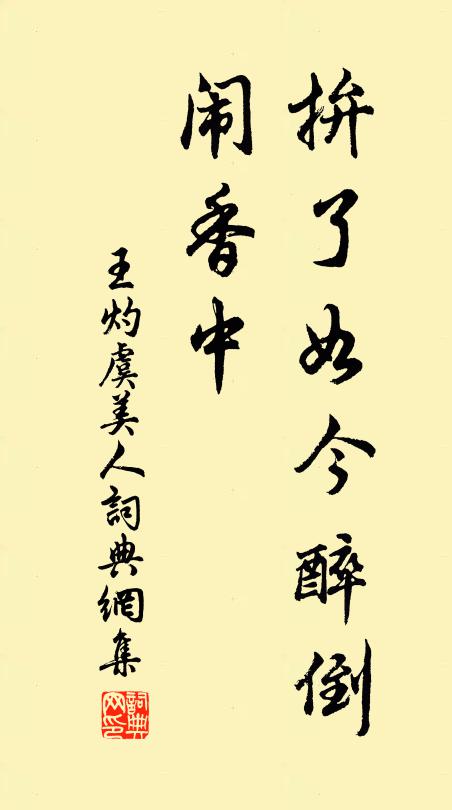 拚了如今醉倒
闹香中
王灼虞美人詞典網集
詞典网印